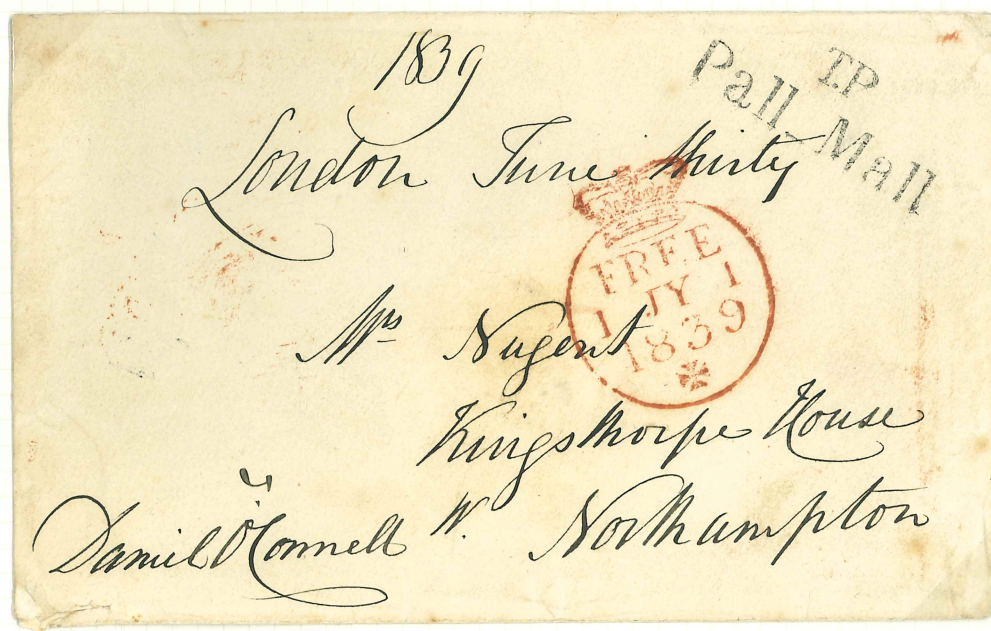 1839
T.P
Pall Mall
London June thirty
FREE
1 JY 1
1839
Mrs Nugent
Kingsthorpe House
Northampton
Daniel O'Connell